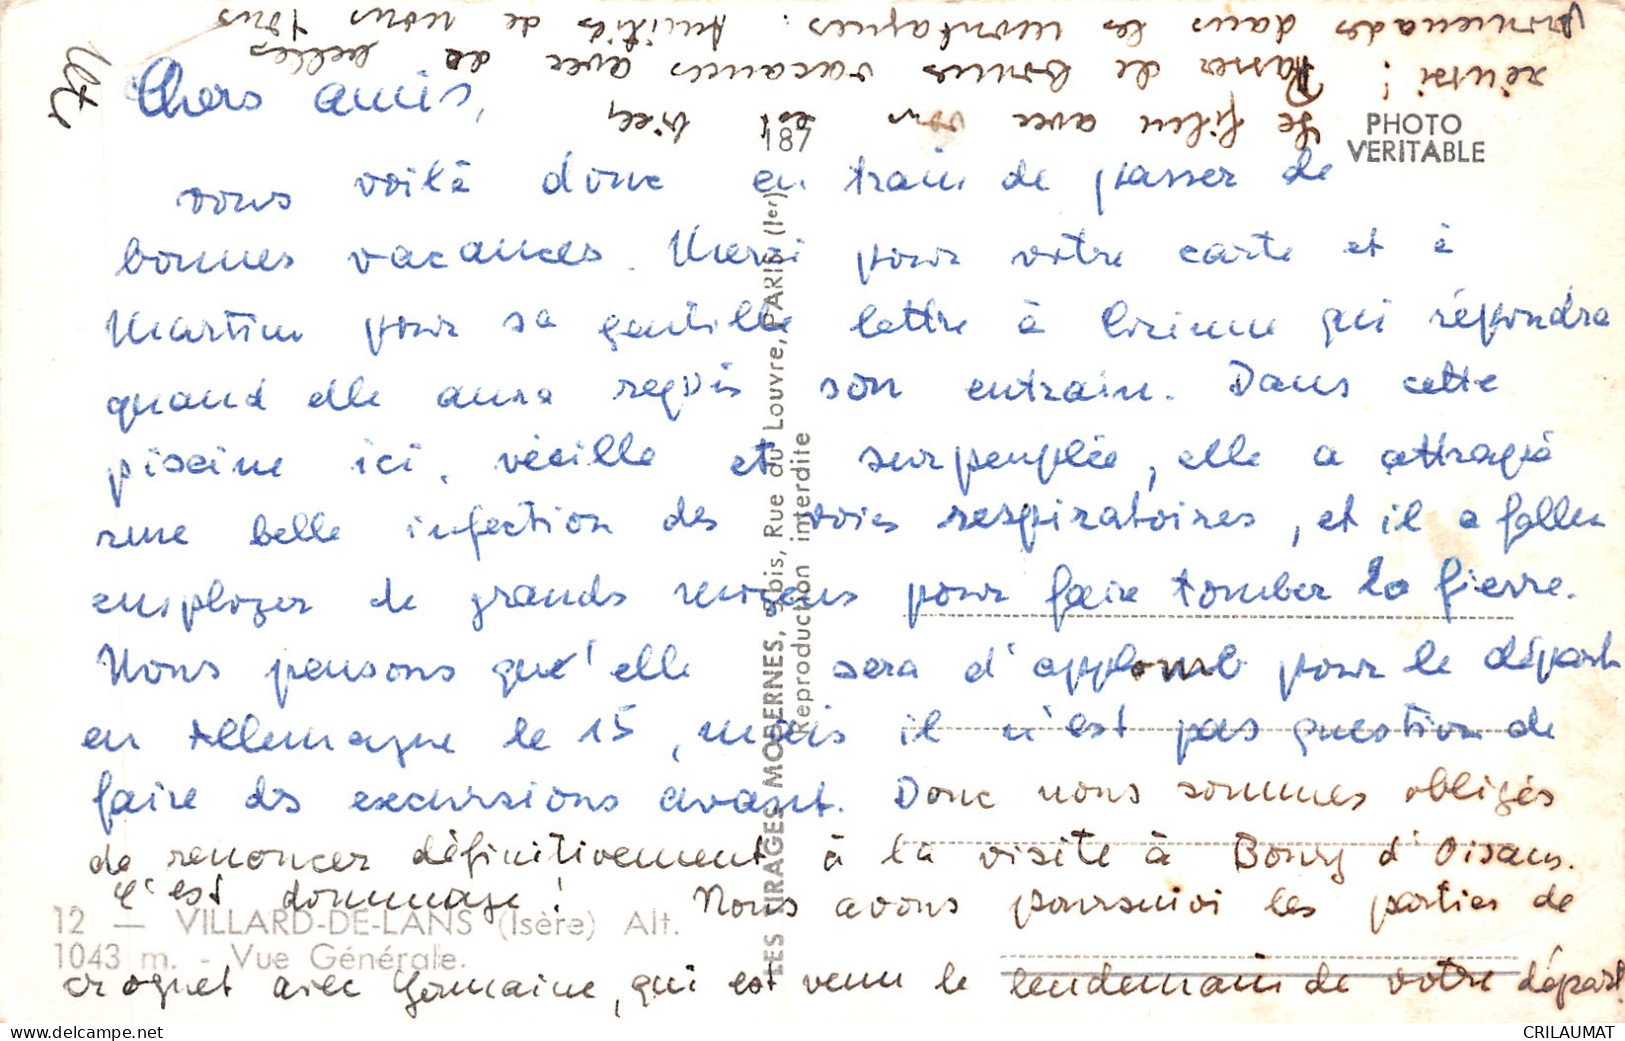 Chers amis,
vous voilà donc en train de passer de
bonnes vacances. Merci pour votre carte et à
Martine pour sa gentille lettre à Corinne qui répondra
quand elle aura repris son entrain. Dans cette
piscine ici, vieille et surpeuplée, elle a attrapé
une belle infection des voies respiratoires, et il a fallu
employer de grands moyens pour faire tomber la fièvre.
Nous pensons qu'elle sera d'applomb pour le départ
en Allemagne le 15, mais il n'est pas question de
faire des excursions avant. Donc nous sommes obligés
de renoncer définitivement à la visite à Bourg d'Oisans.
C'est dommage! Nous avons poursuivi les parties de
croquet avec Germaine, qui est venu le lendemain de votre départ.
Le filou avec vous est bien
réussi! Passer de bonnes vacances avec de belles
promenades dans les montagnes. Amitiés de nous tous
187
PHOTO
VERITABLE
LES TIRAGES MODERNES, 9 bis, Rue du Louvre, PARIS (Ier)
Reproduction interdite
12 — VILLARD-DE-LANS (Isère) Alt.
1043 m. - Vue Générale.
www.delcampe.net
CRILAUMAT